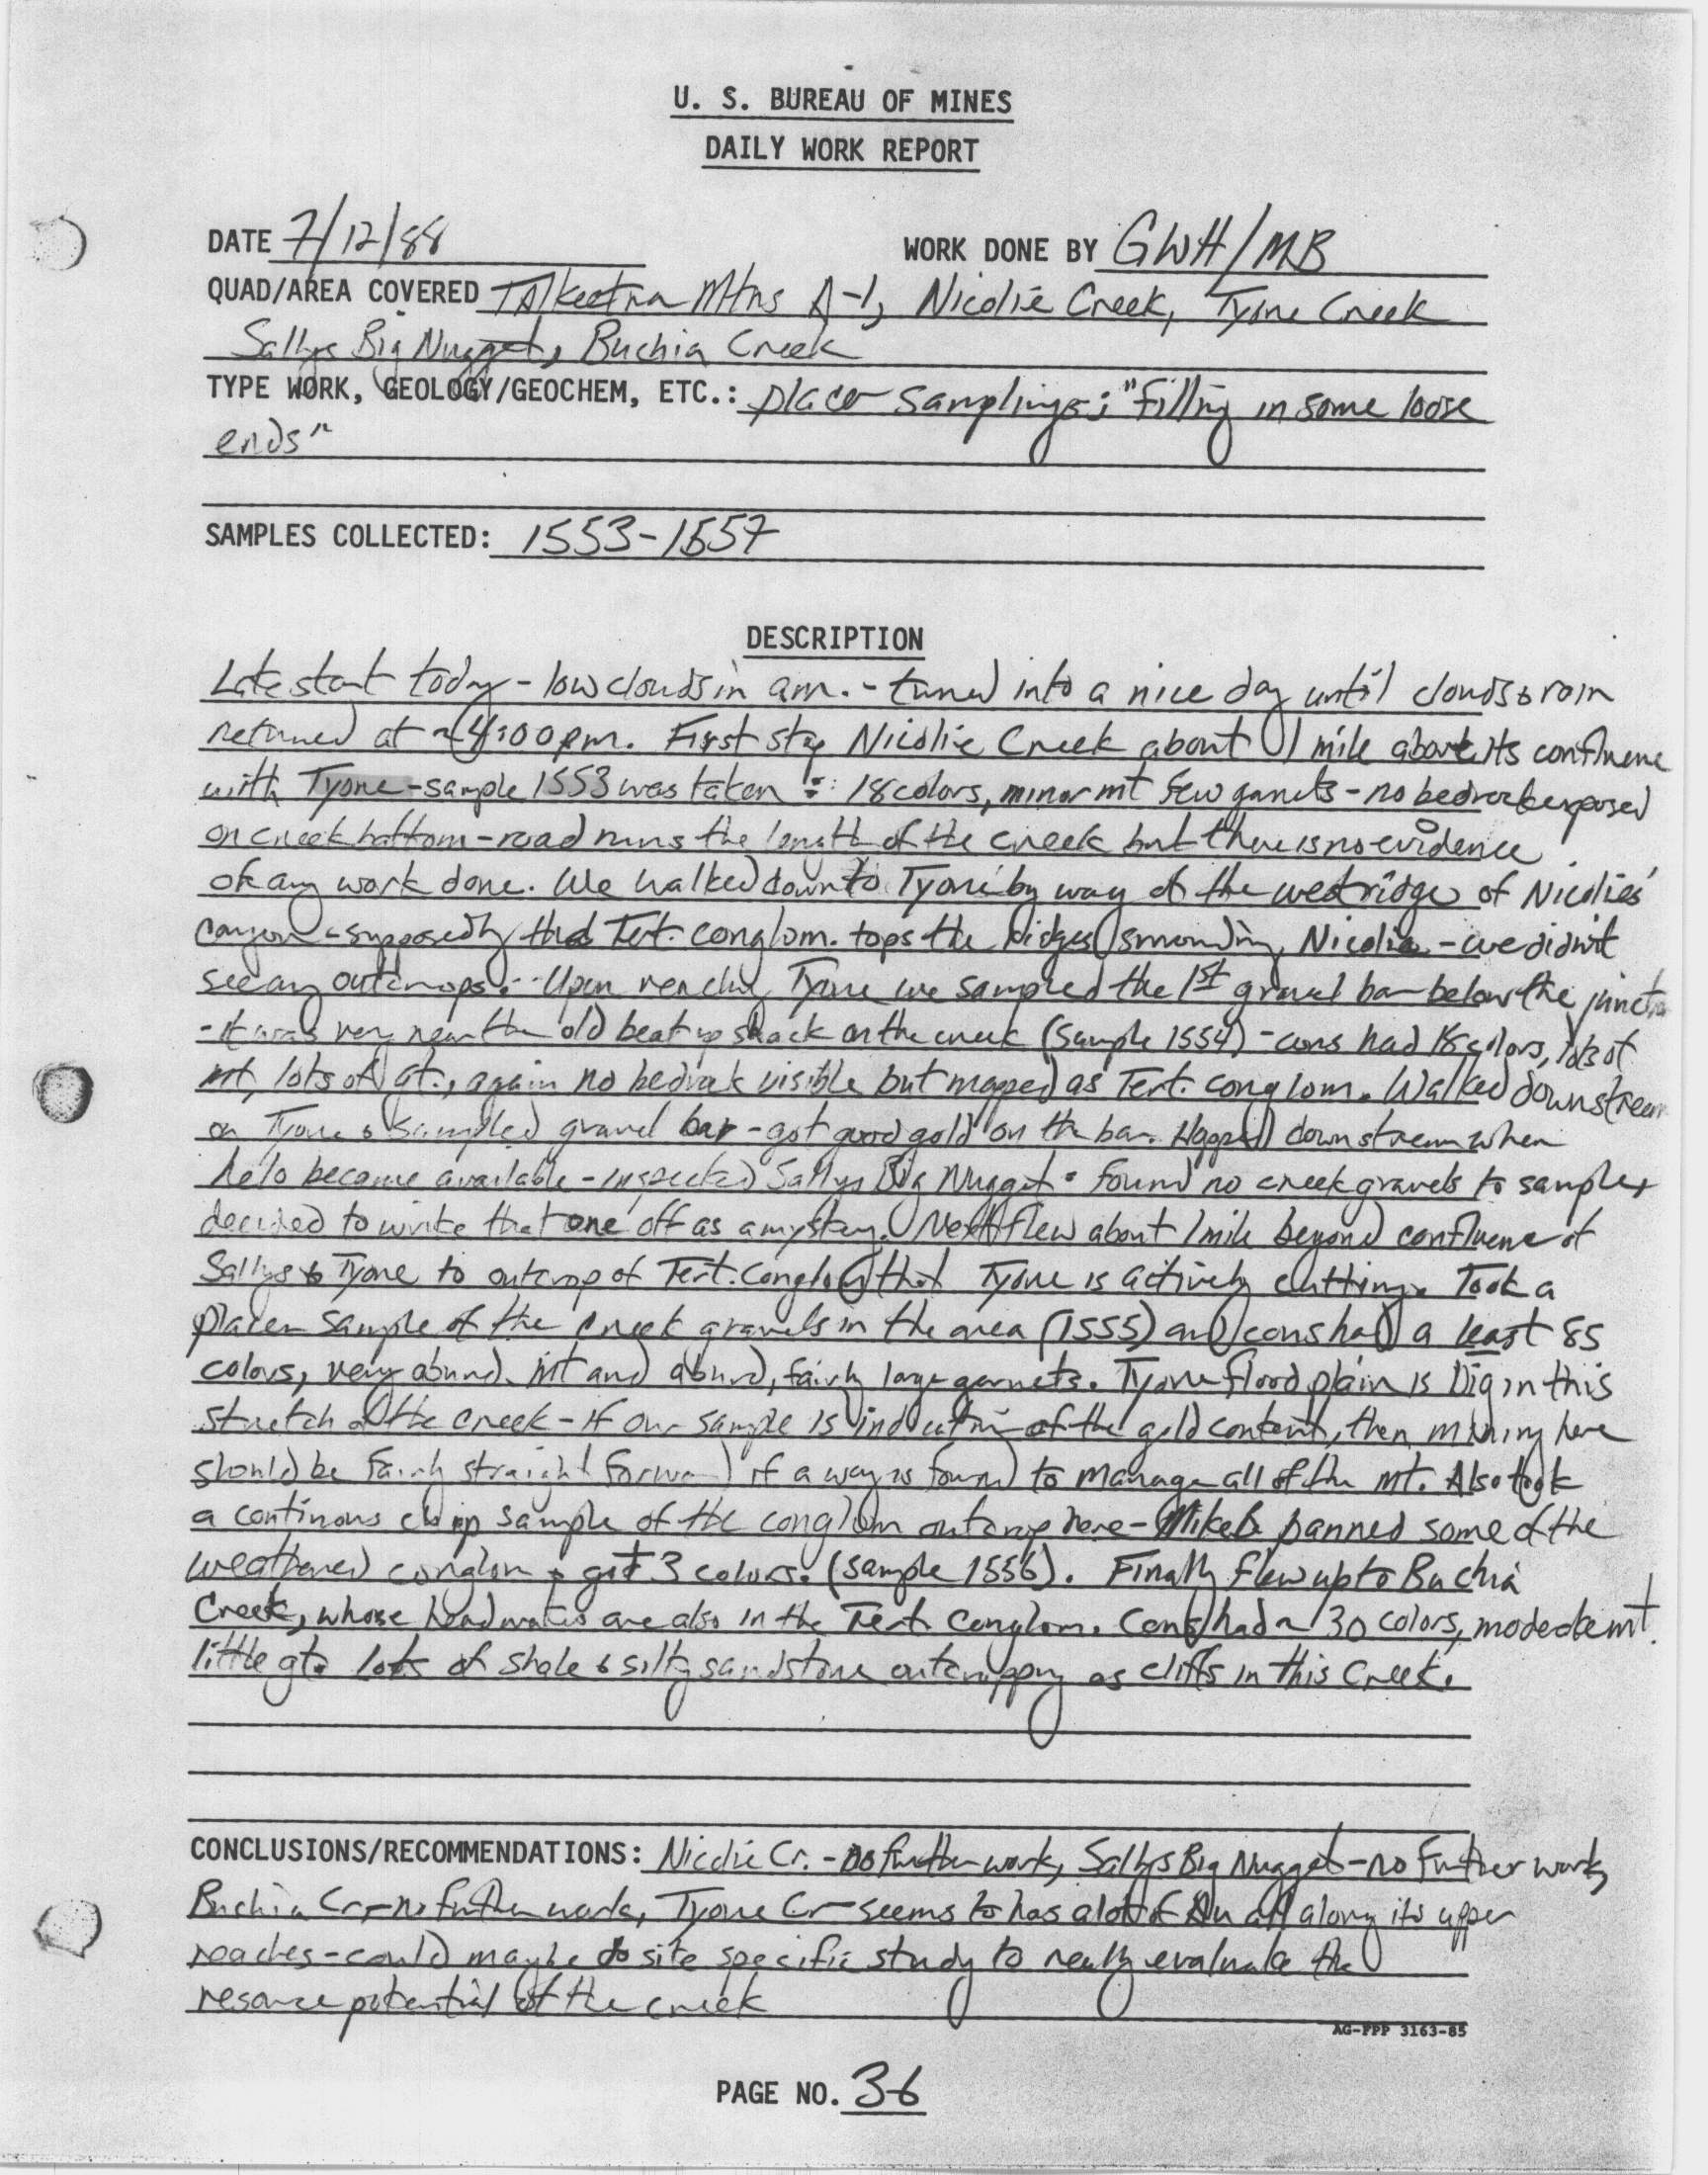 U. S. BUREAU OF MINES
DAILY WORK REPORT
DATE 7/12/88 WORK DONE BY GWH/MB
QUAD/AREA COVERED Talkeetna Mtns A-1, Nicolie Creek, Tyone Creek
Sallys Big Nugget, Buchia Creek
TYPE WORK, GEOLOGY/GEOCHEM, ETC.: placer samplings; "filling in some loose
ends"
SAMPLES COLLECTED: 1553-1557
DESCRIPTION
Late start today - low clouds in am. - turned into a nice day until clouds & rain
returned at ~4:00 pm. First stop Nicolie Creek about 1 mile above its confluence
with Tyone - sample 1553 was taken : 18 colors, minor mt few garnets - no bedrock exposed
on creek bottom - road runs the length of the creek but there is no evidence
of any work done. We walked down to Tyone by way of the west ridge of Nicolies'
canyon - supposedly the Tert. conglom. tops the ridges surrounding Nicolie - we didn't
see any outcrops. Upon reaching Tyone we sampled the 1st gravel bar below the junction
- it was very near the old beat up shack on the creek (sample 1554) - cons had 18 colors, lots of
mt, lots of gt., again no bedrock visible but mapped as Tert. conglom. Walked downstream
on Tyone & sampled gravel bar - got good gold on the bar. Hopped downstream when
helo became available - inspected Sallys Big Nugget - found no creek gravels to sample,
decided to write that one off as a mystery. Next flew about 1 mile beyond confluence of
Sallys & Tyone to outcrop of Tert. Conglom that Tyone is actively cutting. Took a
placer sample of the creek gravels in the area (1555) and cons had a least 85
colors, very abund. mt and abund, fairly large garnets. Tyone flood plain is big in this
stretch of the creek - if our sample is indicative of the gold content, then mining here
should be fairly straight forward if a way is found to manage all of the mt. Also took
a continous chip sample of the conglom outcrop here - Mike B. panned some of the
weathered conglom & got 3 colors. (sample 1556). Finally flew up to Buchia
Creek, whose headwaters are also in the Tert Conglom. Cons had ~ 30 colors, moderate mt.
little gt. lots of shale & silty sandstone outcropping as cliffs in this Creek.
CONCLUSIONS/RECOMMENDATIONS: Nicolie Cr. - no further work, Sallys Big Nugget - no further work,
Buchia Cr. - no further work, Tyone Cr - seems to has alot of Au all along its upper
reaches - could maybe do site specific study to really evaluate the
resource potential of the creek
AG-FPP 3163-85
PAGE NO. 36